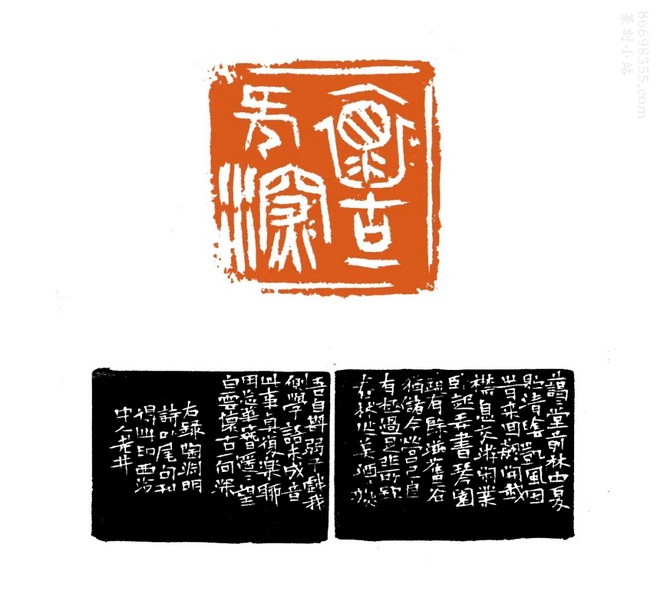 褱古一
何深
藹〻堂前林中夏
貯清陰凱風因
時來回飆開我
襟息交游閑業
臥起弄書琴園
蔬有餘滋舊谷
猶儲今營己良
有極過足非所欽
舂秫作美酒〻熟
吾自斟弱子戲我
側學語未成音
此事真復樂聊
用忘華簪遙〻望
白雲懷古一何深
右錄陶淵明
詩以尾句刊
得此印西泠
中人老井
86698355.com
篆刻小站